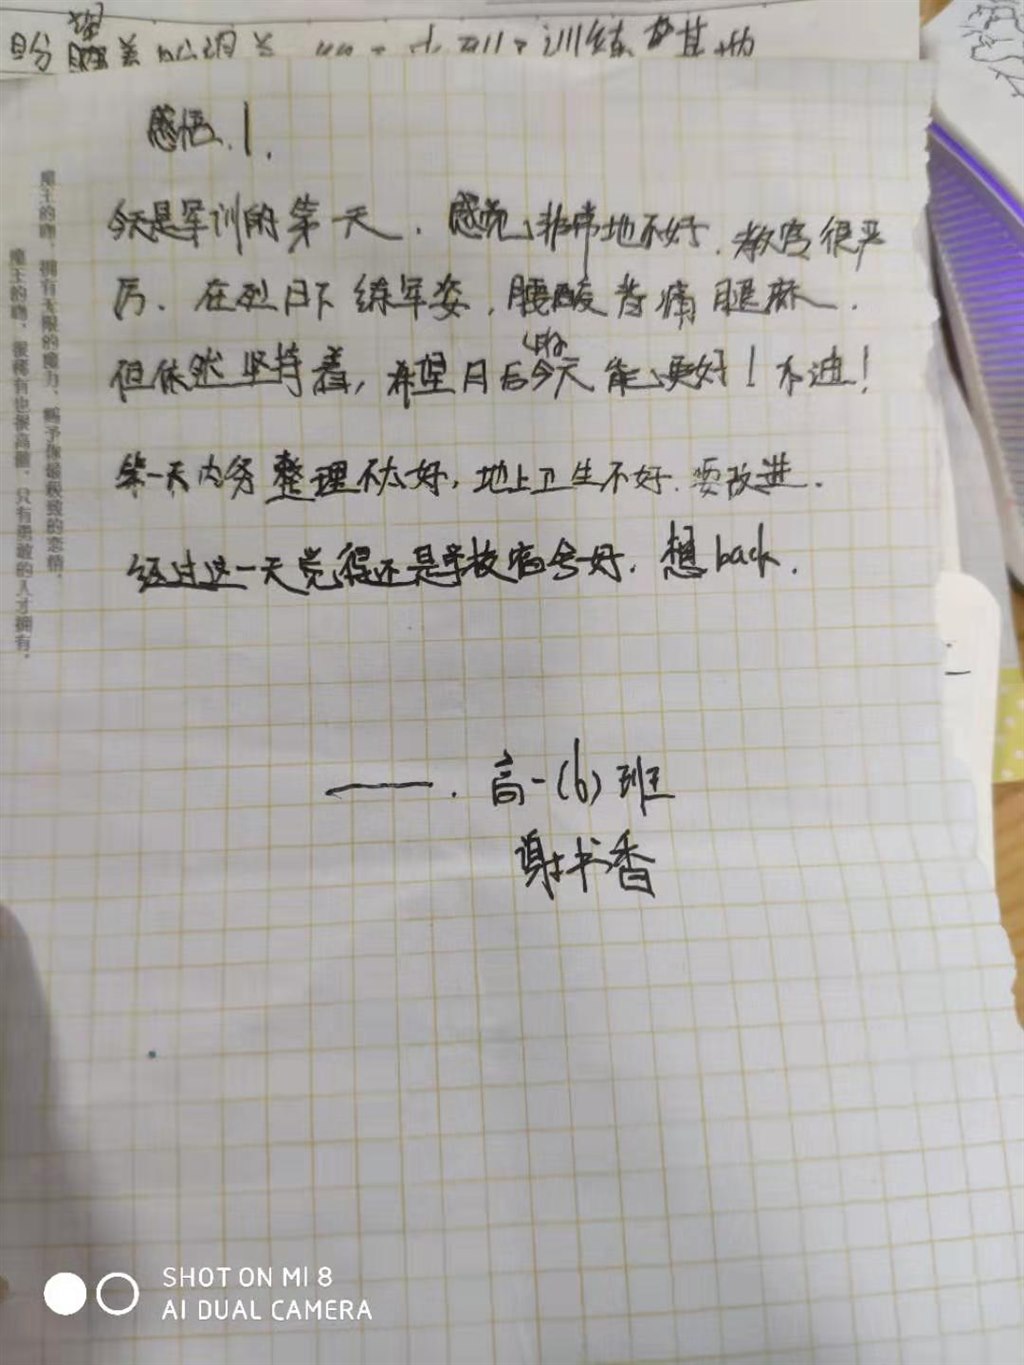 感悟.1.
今天是军训的第一天.感觉非常地不好.教官很严
厉.在烈日下练军姿,腰酸背痛腿麻.
但依然坚持着,希望日后的今天能更好!
第一天内务整理不太好,地上卫生不好.要改进.
经过这一天觉得还是学校宿舍好.想back.
——.高一(6)班
谢书香
魔王的吻,拥有无限的魔力,赐予你最极致的恋情,
魔王的吻,很稀有也很高傲,只有勇敢的人才拥有.
SHOT ON MI 8
AI DUAL CAMERA